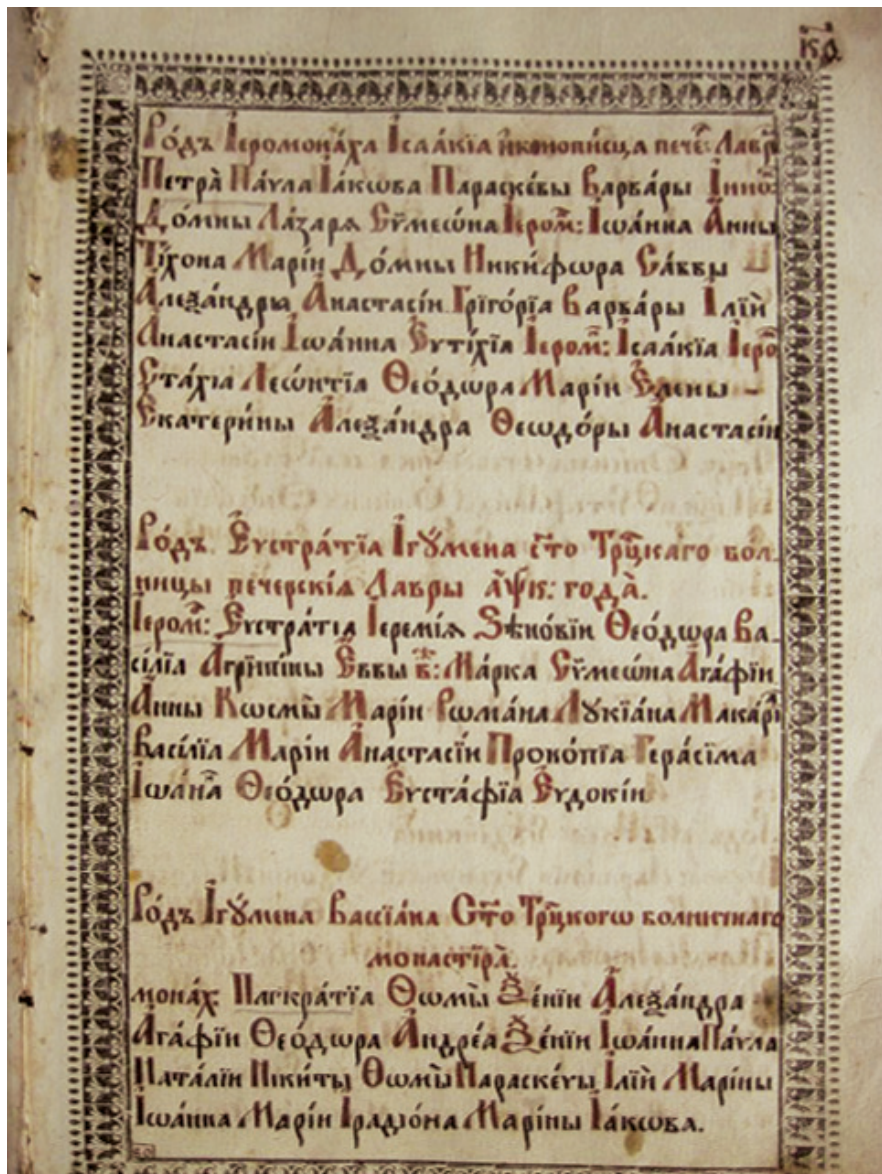 Ро́дъ І҆еромона́ха І҆саа́кїа и҆конопи́сца пече: Лавр
Петра̀ Па́ѵла І҆а́кѡва Параске́вы Варва́ры І҆нно:
До́мны Ла́заря Сѷмеѡ́на І҆еро́м: І҆ѡа́нна А҆́нны
Ти́хона Марі́и До́мны Ники́фѡра Са́ввы –
А҆леѯа́ндры А҆настасі́и Григо́рїа Варва́ры І҆лїѝ
А҆настасі́и І҆ѡа́нна Є҆ѵти́хїа І҆еро́м: І҆саа́кїа І҆еро
Ста́хїа Леѡ́нтїа Ѳео́дѡра Марі́и Є҆ле́ны –
Є҆катери́ны А҆леѯа́ндра Ѳеѡдо́ры А҆настасі́и
Ро́дъ Є҆ѵстра́тїа І҆гꙋ́мена с҃то Тр҃цкаго бол-
ницы печерскїѧ Лавры а҆ѱк҃: го́да̀.
І҆еро́м: Є҆ѵстра́тїа І҆еремі́ѧ Зѣно́вїи Ѳео́дѡра Ва-
сі́лїа А҆грипи́ны Є҆́ввы в҃: Ма́рка Сѷмеѡ́на А҆га́фїи
А҆́нны Кѡсмы̀ Марі́и Рѡма́на Лꙋкїа́на Мака́рї
Васі́лїа Марі́и А҆настасі́и Проко́пїа Гера́сіма
І҆ѡа́нна Ѳео́дѡра Є҆ѵста́фїа Є҆ѵдокі́и
Ро́дъ І҆гꙋ́мена Вассїа́на С҃то Тр҃цкогѡ болнічнаго
монасти́рѧ̀.
мона́х: Пагкра́тїа Ѳѡмы̀ Ѯе́нїи А҆леѯа́ндра
А҆га́фїи Ѳео́дѡра А҆ндре́а Ѯе́нїи І҆ѡа́нна Па́ѵла
Ната́лїи Ники́ты Ѳѡмы̀ Параске́ѵы І҆лїѝ Мари́ны
І҆ѡа́нна Марі́и І҆радїѡ́на Мари́ны І҆а́кѡва.